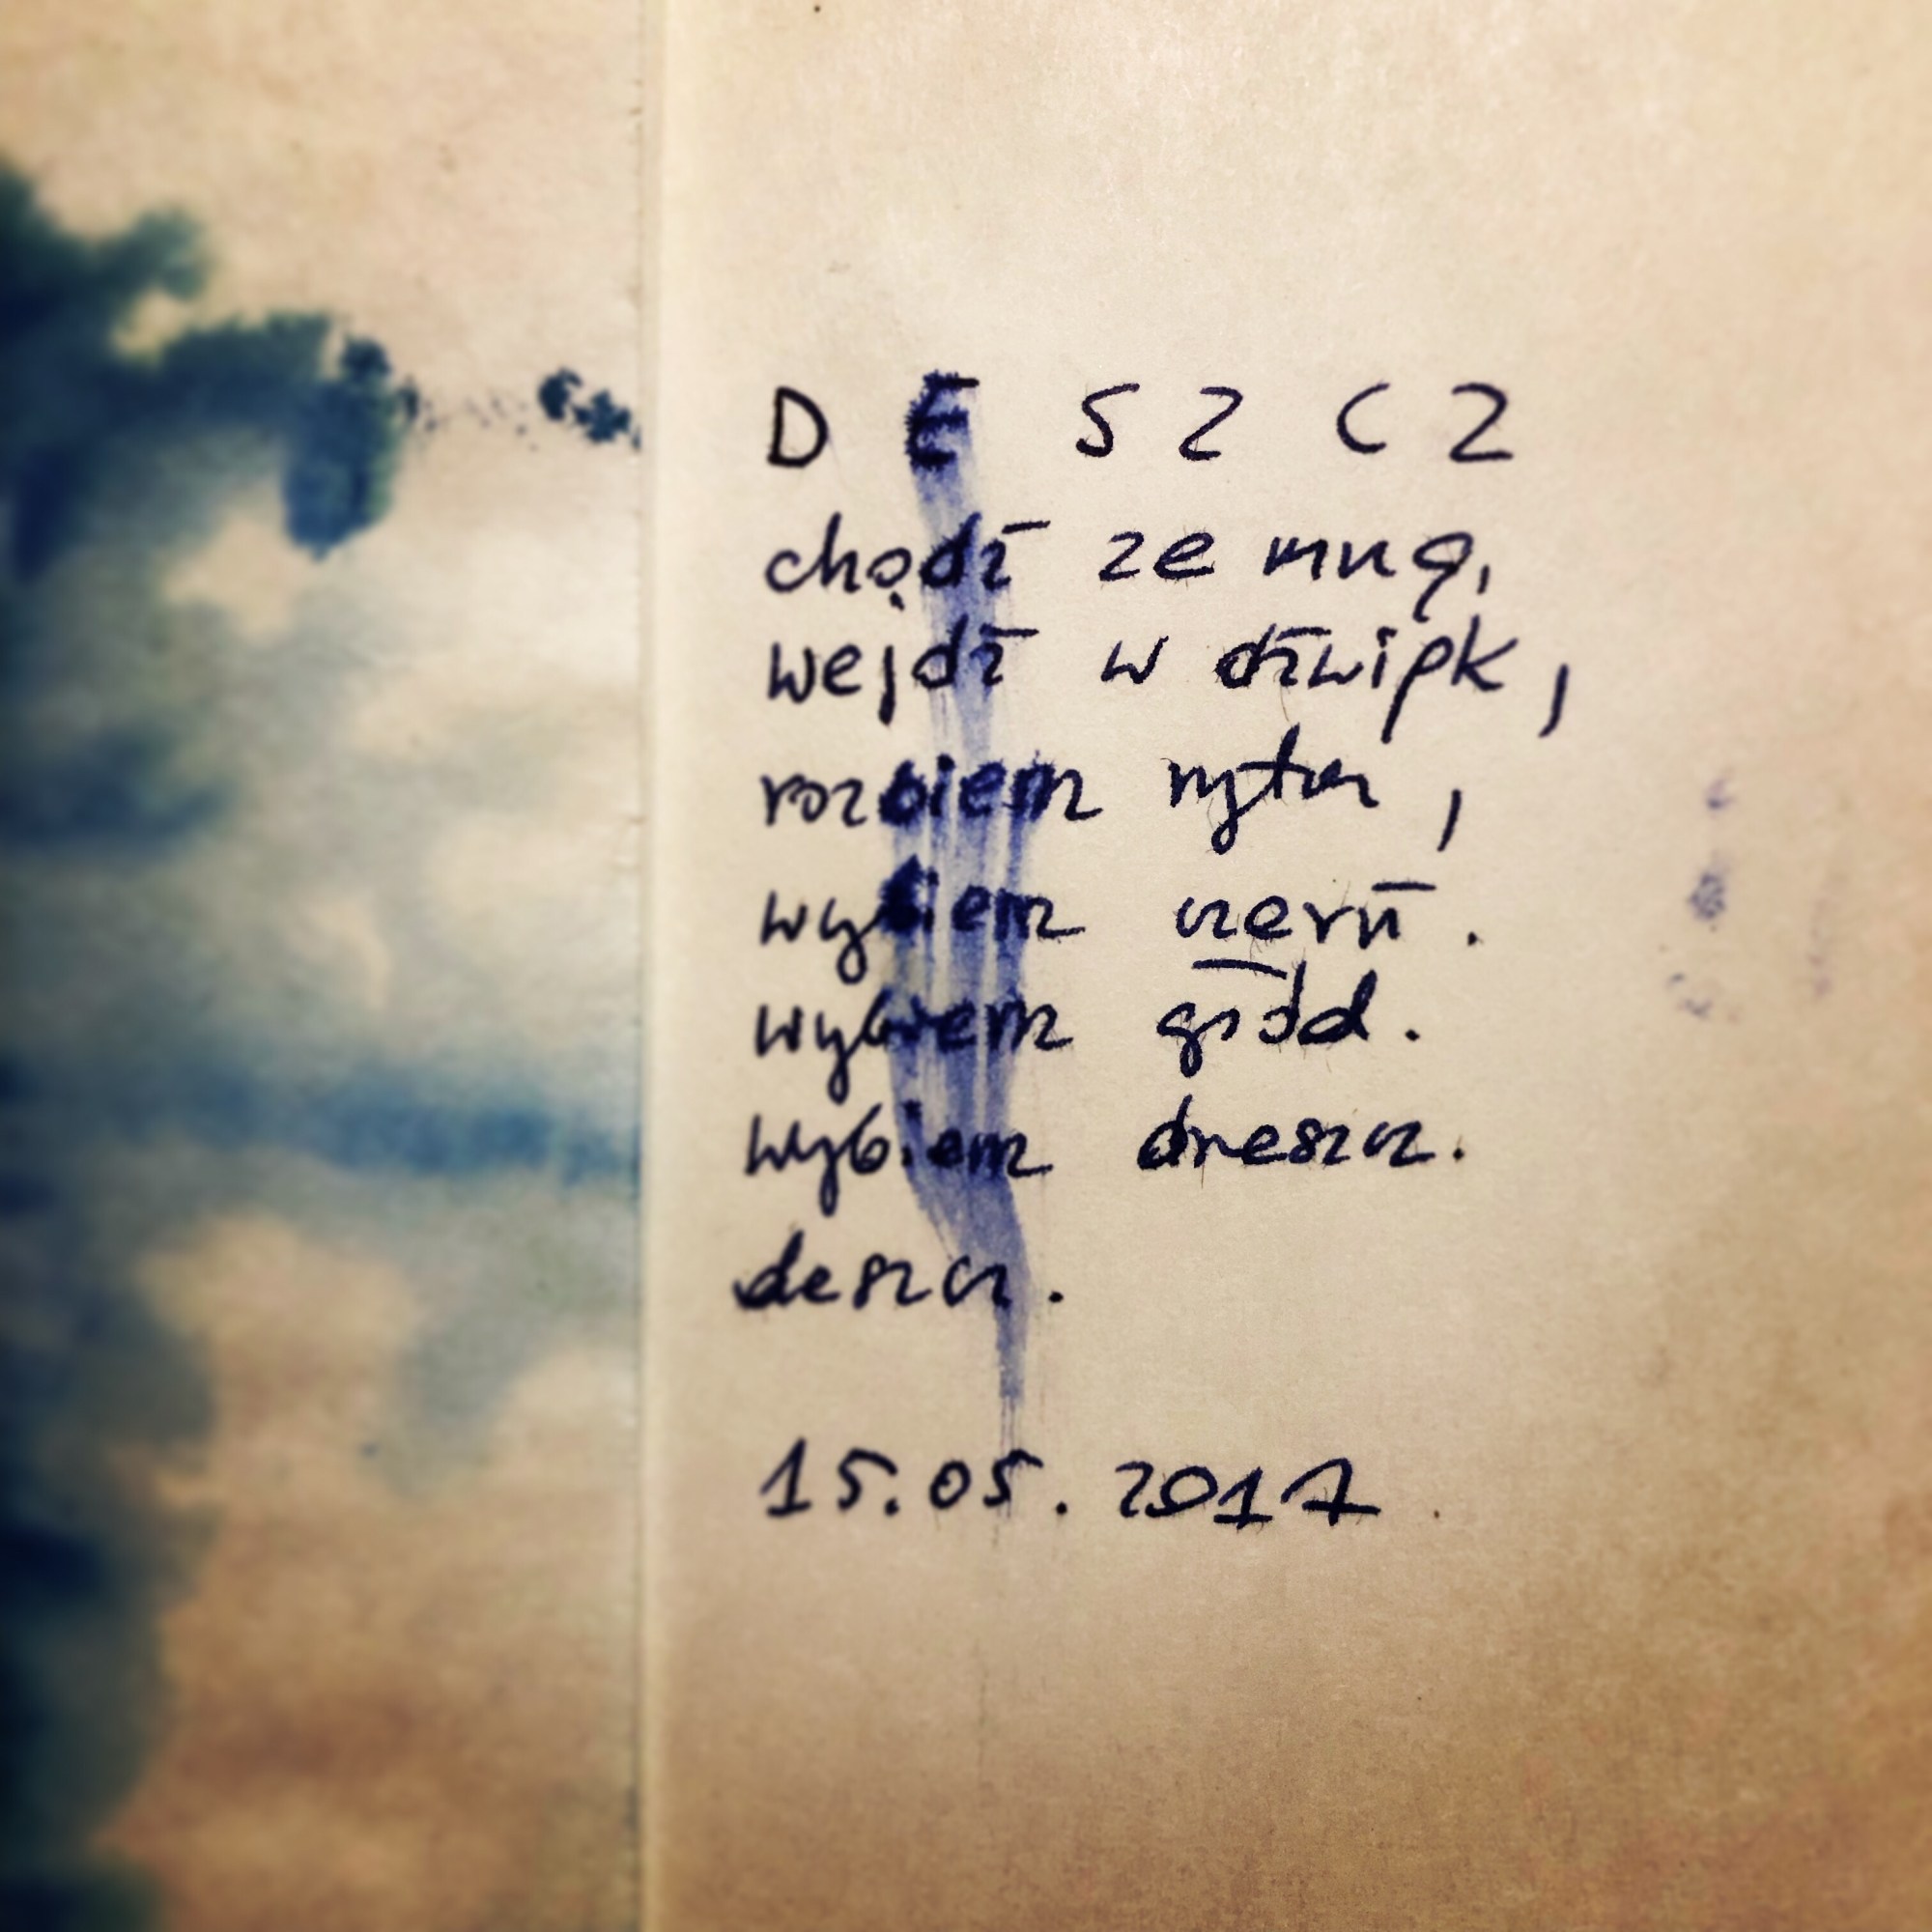 DESZCZ
chodź ze mną,
wejdź w dźwięk,
rozbierz rytm,
wybierz czerń.
wybierz
wybierz dreszcz.
deszcz.
15.05.2017